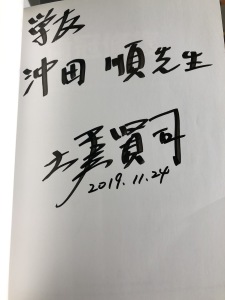 学友
沖田 順先生
土美賢司
2019.11.24